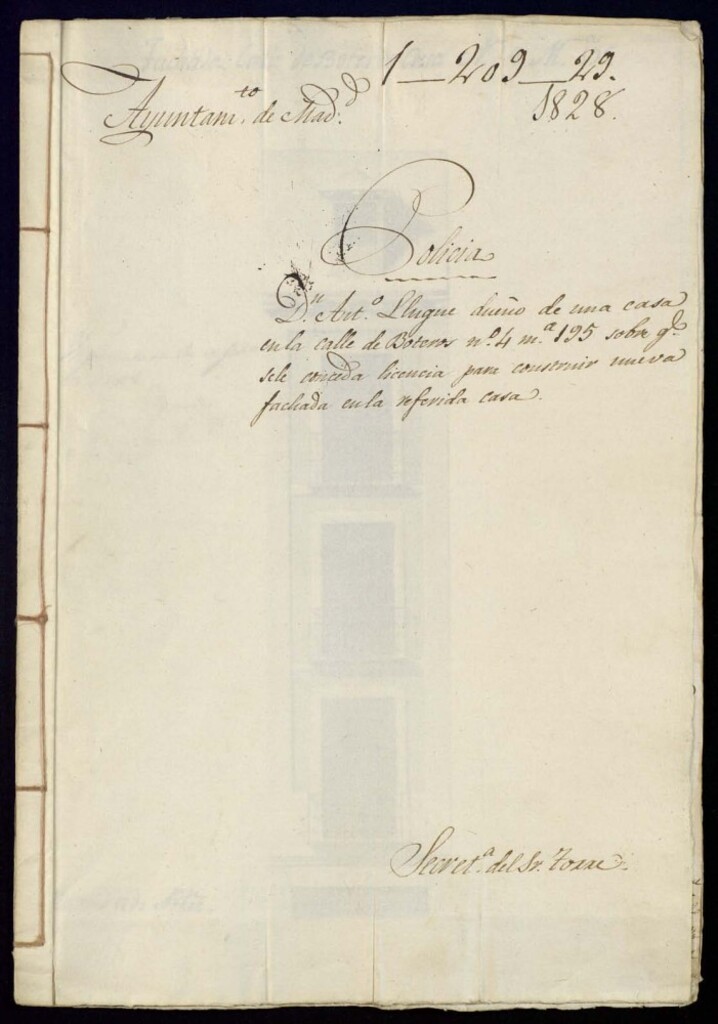 1—209—29.
Ayuntam.to de Mad.d
1828.
Policia
D.n Ant.o Llugue dueño de una casa
en la calle de Boteros n.o 4 m.a 195 sobre q.e
sele conceda licencia para construir nueva
fachada en la referida casa.
Secret.a del Sr. Torre.